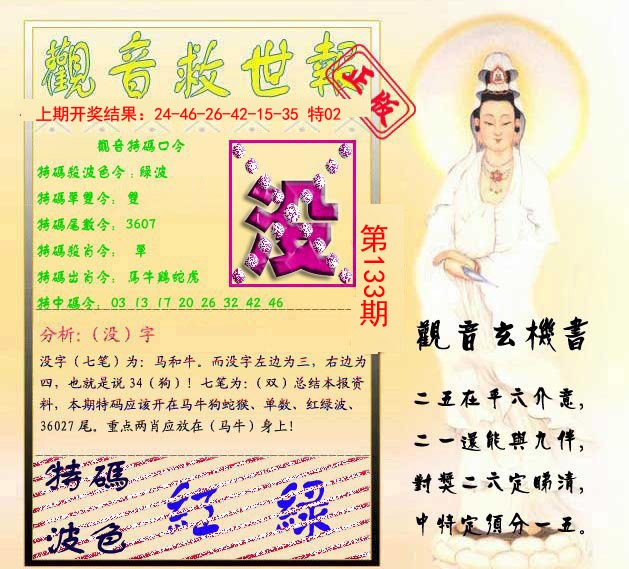 觀音救世報
正版
上期开奖结果：24-46-26-42-15-35 特02
觀音特碼口令
特碼殺波色令：綠波
特碼單雙令： 雙
特碼尾數令： 3607
特碼殺肖令： 單
特碼出肖令： 馬牛鷄蛇虎
特中碼令： 03 13 17 20 26 32 42 46
没
第133期
分析:（没）字
没字（七笔）为：马和牛。而没字左边为三，右边为
四，也就是说34（狗）！七笔为：（双）总结本报资
料，本期特码应该开在马牛狗蛇猴、单数、红绿波、
36027尾。重点两肖应放在（马牛）身上！
特碼
波色
紅 綠
觀音玄機書
二五在平六介意，
二一還能與九伴，
對獎二六定睇清，
中特定領分一五。